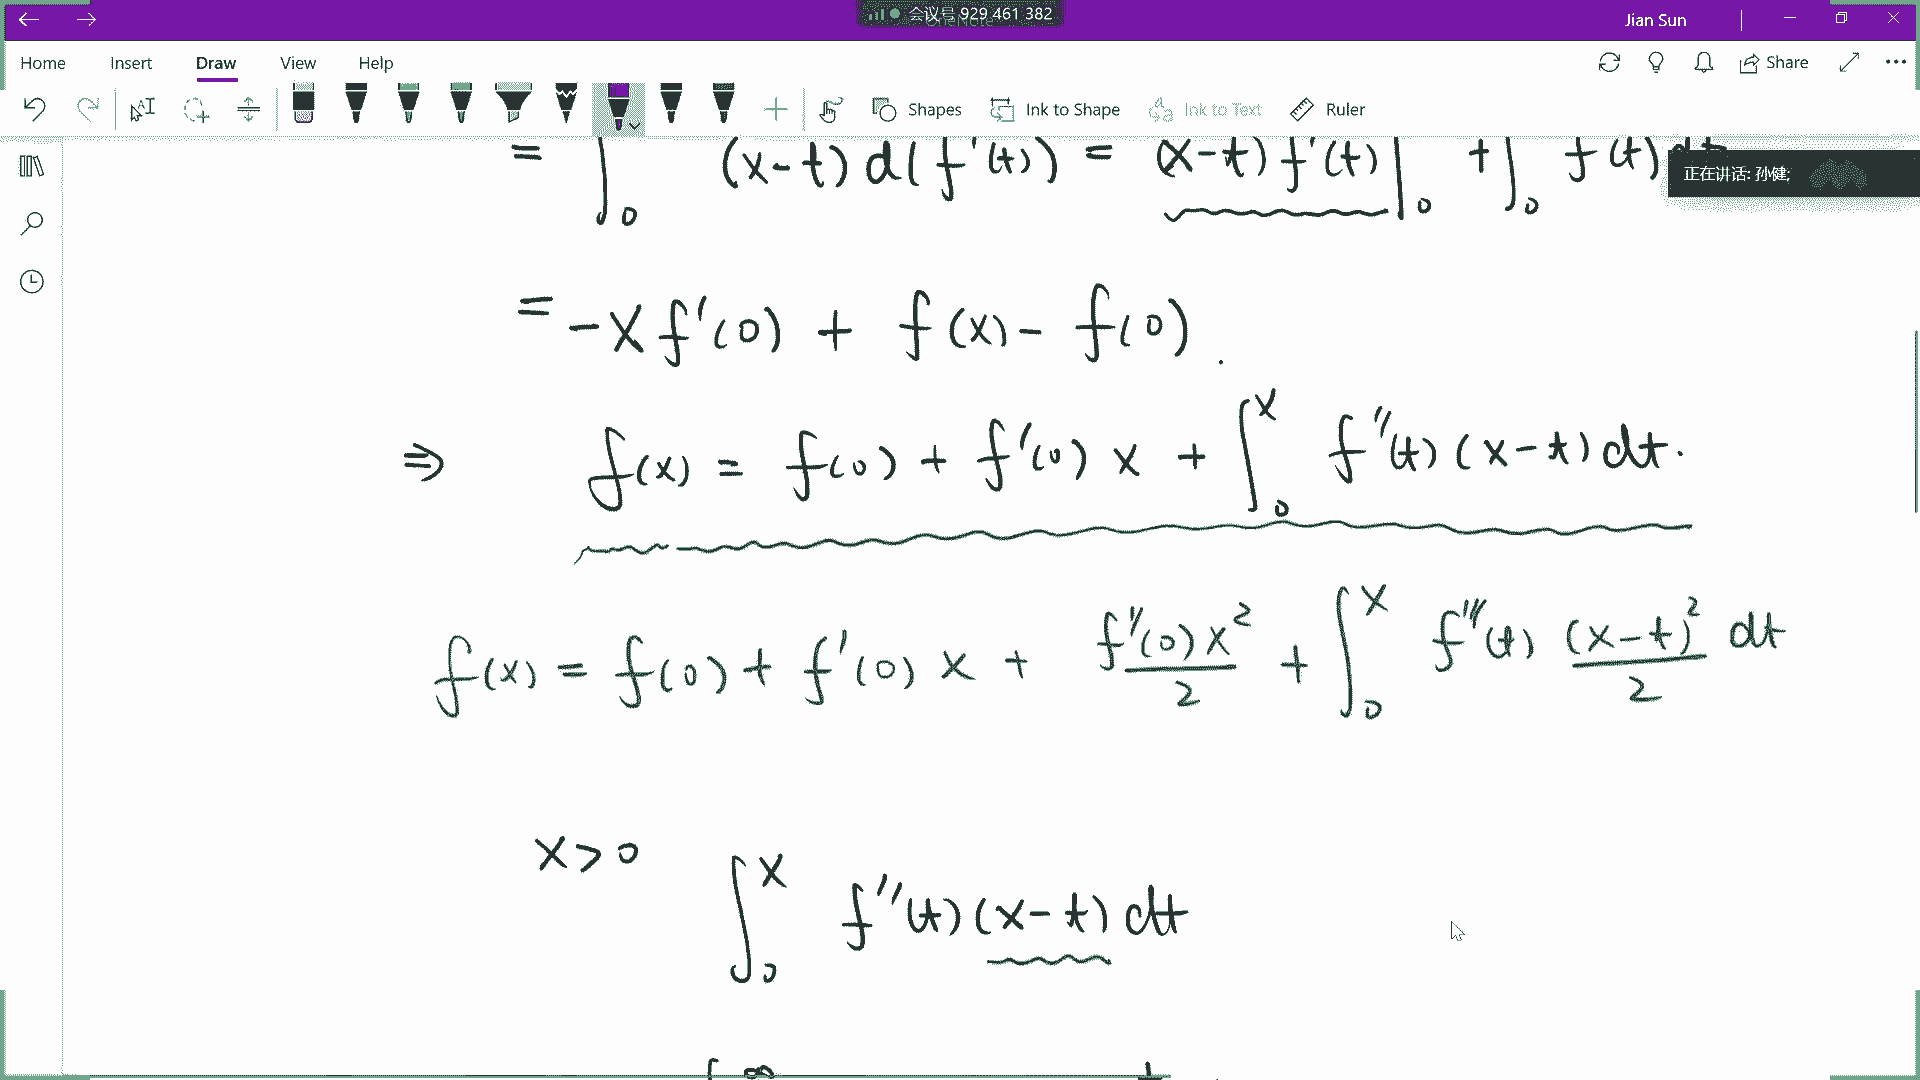 会议号 929 461 382
OneNote
Jian Sun
Home Insert Draw View Help Share
Shapes Ink to Shape Ink to Text Ruler
正在讲话: 孙健;
= ∫₀ (x-t) d(f'(t)) = (x-t) f'(t)|₀ + ∫₀ f'(t) dt
= -x f'(0) + f(x) - f(0).
⇒ f(x) = f(0) + f'(0) x + ∫₀ˣ f''(t) (x-t) dt.
f(x) = f(0) + f'(0) x + f''(0)x²/2 + ∫₀ˣ f'''(t) (x-t)²/2 dt
x>0 ∫₀ˣ f''(t) (x-t) dt